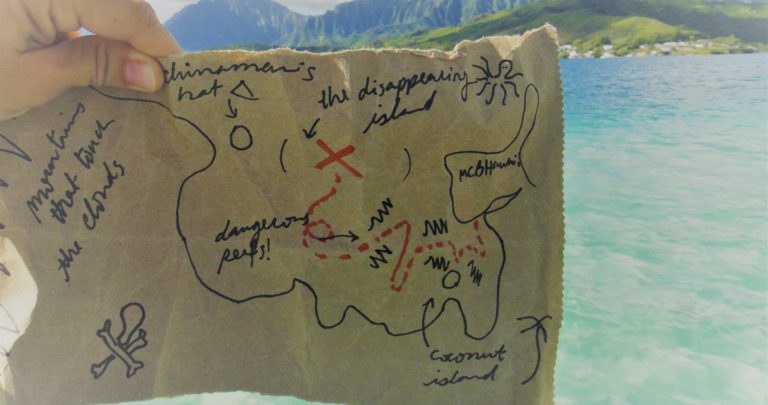 chinamen's
hat
the disappearing
island
MCBHawaii
mountains
that touch
the clouds
dangerous
reefs!
coconut
island